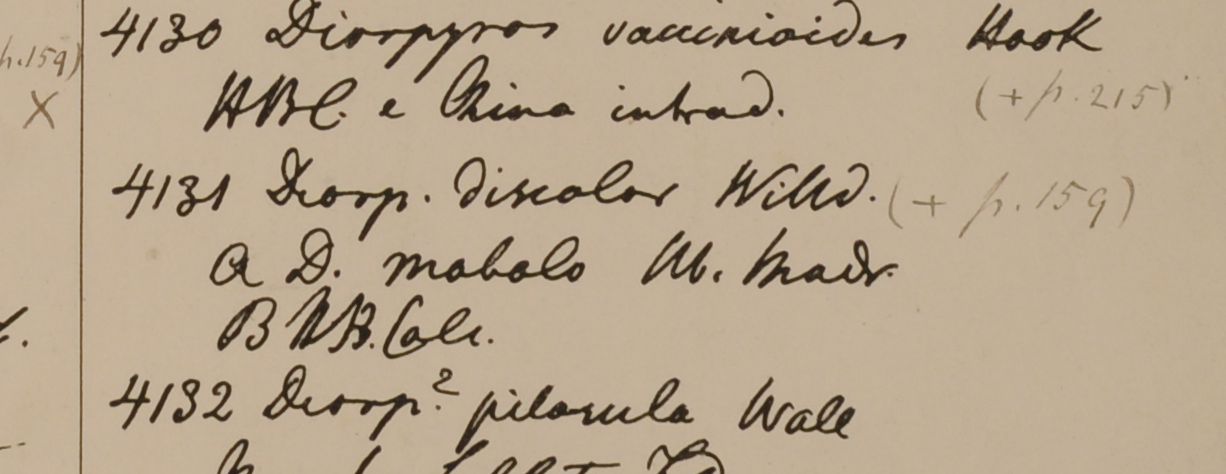 4130 Diospyros vaccinioides Hook
HBC. e China introd. (+ p. 215)
p. 159)
X
4131 Diosp. discolor Willd. (+ p. 159)
a D. mabolo M. Madr.
B HB. Calc.
4132 Diosp.? pilosula Wall